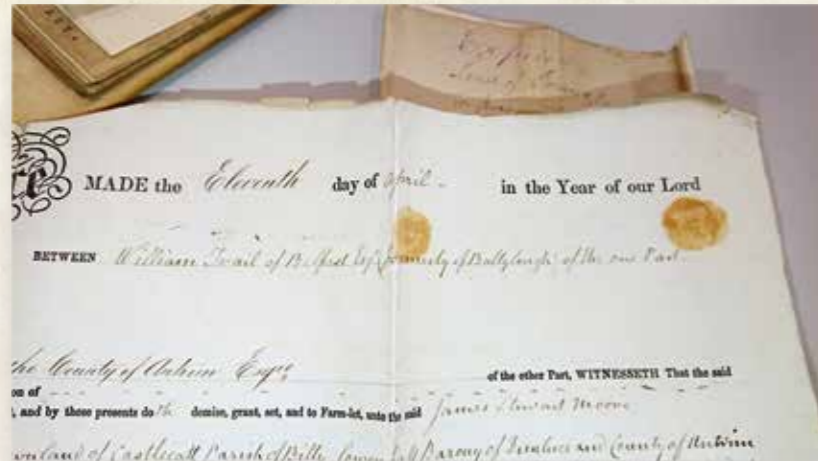 MADE the Eleventh day of April in the Year of our Lord
BETWEEN William Trail of Belfast Esqr formerly of Ballylough of the one Part
the County of Antrim Esqre of the other Part, WITNESSETH That the said
on of
, and by these presents doth demise, grant, set, and to Farm-let, unto the said James Stewart Moore
townland of Castlecatt Parish of Billy Barony of Dunluce and County of Antrim